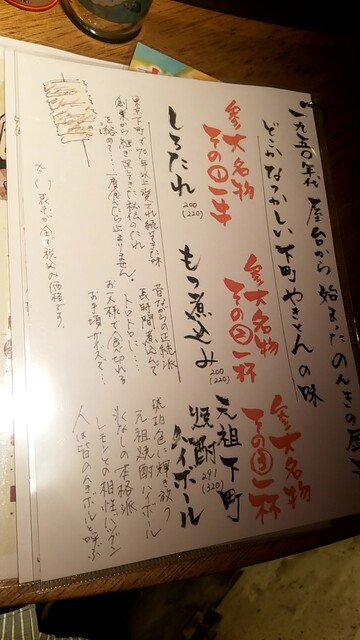 一九五〇年代 屋台から始まったのんきの屋
どこかなつかしい下町やきとんの味
参大名物
その一 一本
しろたれ
200
(220)
東京下町で70年以上愛され続けてきた味
創業から継ぎ足してきた秘伝のたれ
を絡めて…一度食べたら止まりません。
参大名物
その二 一杯
もつ煮込み
200
(220)
昔ながらの正統派
長時間煮込んで
トロトロに…
お一人様で食べ切れる
お手頃サイズで…
参大名物
その三 一杯
元祖下町
焼酎ハイボール
291
(320)
琥珀色に輝き放つ
元祖焼酎ハイボール
氷なしの本格派
レモンとの相性バツグン
人は皆のんきボールと呼ぶ
※( )表示の金額は税込み価格です。